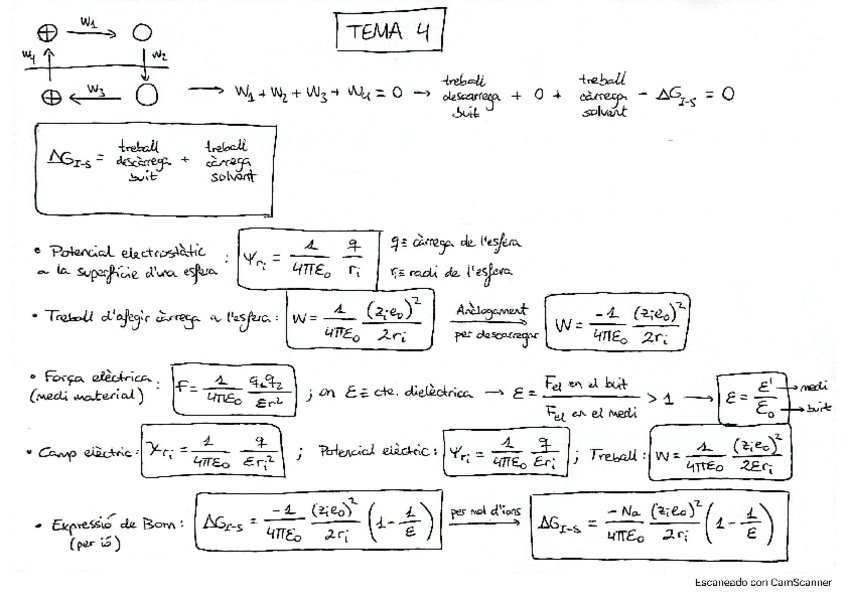 TEMA 4
⊕ W₁ → ○
W₄ ↑ ↓ W₂
⊕ ← W₃ ○
→ W₁ + W₂ + W₃ + W₄ = 0 → treball descarrega buit + 0 + treball càrrega solvent - ΔG_I-S = 0
ΔG_I-S = treball descàrrega buit + treball càrrega solvent
• Potencial electrostàtic a la superfície d'una esfera : Ψ_ri = 1/(4πε₀) q/rᵢ
q ≡ càrrega de l'esfera
rᵢ ≡ radi de l'esfera
• Treball d'afegir càrrega a l'esfera: W = 1/(4πε₀) (zᵢe₀)²/(2rᵢ) Anàlogament per descarregar → W = -1/(4πε₀) (zᵢe₀)²/(2rᵢ)
• Força elèctrica: (medi material) F = 1/(4πε₀) q₁q₂/(εr²) ; on ε ≡ cte. dielèctrica → ε = F_el en el buit / F_el en el medi > 1 → ε = ε'/ε₀ → medi → buit
• Camp elèctric: X_ri = 1/(4πε₀) q/(εrᵢ²) ; Potencial elèctric: Ψ_ri = 1/(4πε₀) q/(εrᵢ) ; Treball: W = 1/(4πε₀) (zᵢe₀)²/(2εrᵢ)
• Expressió de Born: (per ió) ΔG_I-S = -1/(4πε₀) (zᵢe₀)²/(2rᵢ) (1 - 1/ε) per mol d'ions → ΔG_I-S = -Na/(4πε₀) (zᵢe₀)²/(2rᵢ) (1 - 1/ε)
Escaneado con CamScanner